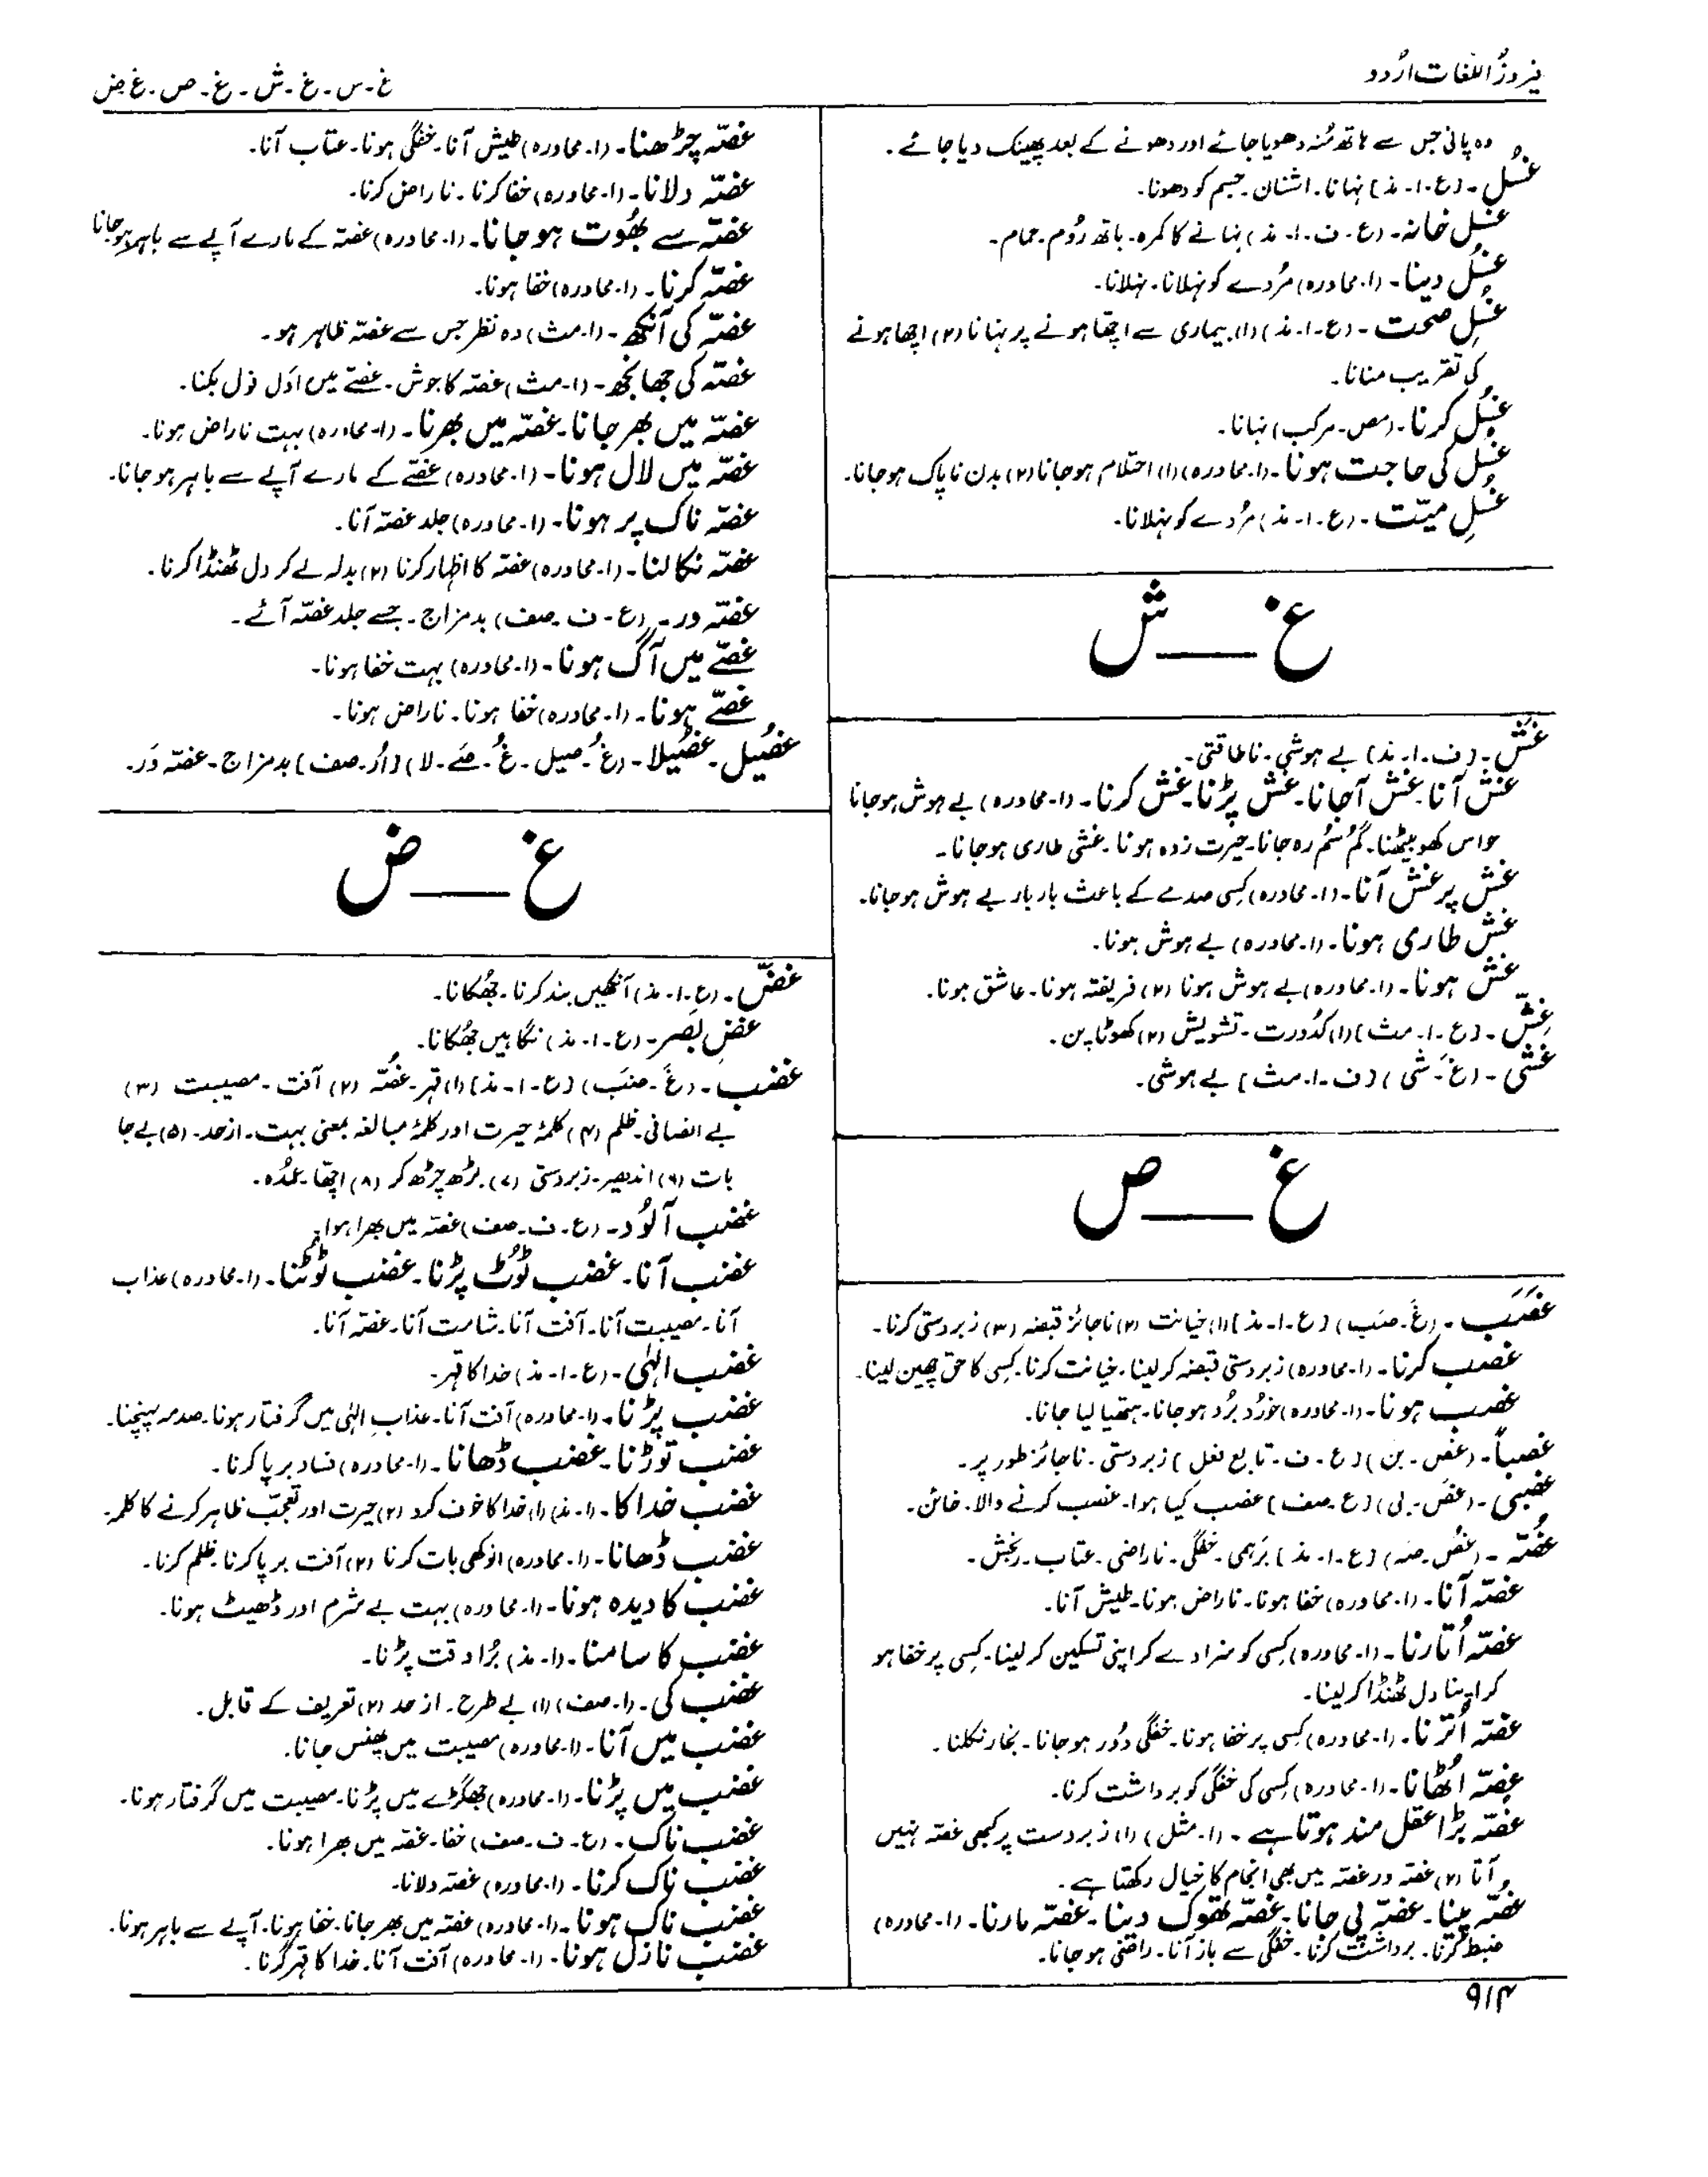 فیروز اللغات اردو
غ۔س۔غ۔ش۔غ۔ص۔غ۔ض
وہ پانی جس سے ہاتھ مُنہ دھویا جائے اور دھونے کے بعد پھینک دیا جائے۔
غُسُل۔ [ع۔ا۔مذ] نہانا۔ اشنان۔ جسم کو دھونا۔
غسل خانہ۔ (ع۔ف۔ا۔مذ) نہانے کا کمرہ۔ باتھ رُوم۔ حمام۔
غُسل دینا۔ (ا۔محاورہ) مُردے کو نہلانا۔ نہلانا۔
غُسلِ صحت۔ (ع۔ا۔مذ) (۱) بیماری سے اچھا ہونے پر نہانا (۲) اچھا ہونے
کی تقریب منانا۔
غُسل کرنا۔ (مص۔مرکب) نہانا۔
غُسل کی حاجت ہونا۔ (ا۔محاورہ) (۱) احتلام ہو جانا (۲) بدن ناپاک ہو جانا۔
غُسلِ میّت۔ (ع۔ا۔مذ) مُردے کو نہلانا۔
غ ـــ ش
غَش۔ [ف۔ا۔مذ] بے ہوشی۔ ناطاقتی۔
غش آنا۔ غش آ جانا۔ غش پڑنا۔ غش کرنا۔ (ا۔محاورہ) بے ہوش ہو جانا
حواس کھو بیٹھنا۔ گُم سُم رہ جانا۔ حیرت زدہ ہونا۔ غشی طاری ہو جانا۔
غش پر غش آنا۔ (ا۔محاورہ) کسی صدمے کے باعث بار بار بے ہوش ہو جانا۔
غش طاری ہونا۔ (ا۔محاورہ) بے ہوش ہونا۔
غش ہونا۔ (ا۔محاورہ) بے ہوش ہونا (۲) فریفتہ ہونا۔ عاشق ہونا۔
غِشّ۔ [ع۔ا۔مث] (۱) کدُورت۔ تشویش (۲) کھوٹا پن۔
غشی۔ (غَ۔شی) [ف۔ا۔مث] بے ہوشی۔
غ ـــ ص
غَصَب۔ (غَ۔صَب) [ع۔ا۔مذ] (۱) خیانت (۲) ناجائز قبضہ (۳) زبردستی کرنا۔
غصب کرنا۔ (ا۔محاورہ) زبردستی قبضہ کر لینا۔ خیانت کرنا۔ کسی کا حق چھین لینا۔
غصب ہونا۔ (ا۔محاورہ) خُورد بُرد ہو جانا۔ ہتھیا لیا جانا۔
غصباً۔ (غص۔بن) [ع۔ف۔تابع فعل] زبردستی۔ ناجائز طور پر۔
غصبی۔ (غَص۔بی) [ع۔صف] غصب کیا ہوا۔ غصب کرنے والا۔ خائن۔
غُصّہ۔ (غُص۔صہ) [ع۔ا۔مذ] برہمی۔ خفگی۔ ناراضی۔ عتاب۔ رنجش۔
غصّہ آنا۔ (ا۔محاورہ) خفا ہونا۔ ناراض ہونا۔ طیش آنا۔
غصّہ اُتارنا۔ (ا۔محاورہ) کسی کو سزا دے کر اپنی تسکین کر لینا۔ کسی پر خفا ہو
کر اپنا دل ٹھنڈا کر لینا۔
غصّہ اُترنا۔ (ا۔محاورہ) کسی پر خفا ہونا۔ خفگی دُور ہو جانا۔ بخار نکلنا۔
غصّہ اُٹھانا۔ (ا۔محاورہ) کسی کی خفگی کو برداشت کرنا۔
غصّہ بڑا عقل مند ہوتا ہے۔ (ا۔مثل) (۱) زبردست پر کبھی غصّہ نہیں
آتا (۲) غصّہ ور غصّہ میں بھی انجام کا خیال رکھتا ہے۔
غصّہ پینا۔ غصّہ پی جانا۔ غصّہ تھوک دینا۔ غصّہ مارنا۔ (ا۔محاورہ)
ضبط کرنا۔ برداشت کرنا۔ خفگی سے باز آنا۔ راضی ہو جانا۔
غصّہ چڑھنا۔ (ا۔محاورہ) طیش آنا۔ خفگی ہونا۔ عتاب آنا۔
غصّہ دلانا۔ (ا۔محاورہ) خفا کرنا۔ ناراض کرنا۔
غصّہ سے بھُوت ہو جانا۔ (ا۔محاورہ) غصّہ کے مارے آپے سے باہر ہو جانا
غصّہ کرنا۔ (ا۔محاورہ) خفا ہونا۔
غصّہ کی آنکھ۔ (ا۔مث) وہ نظر جس سے غصّہ ظاہر ہو۔
غصّہ کی جھانجھ۔ (ا۔مث) غصّہ کا جوش۔ غصّے میں اَول فَول بکنا۔
غصّہ میں بھر جانا۔ غصّہ میں بھرنا۔ (ا۔محاورہ) بہت ناراض ہونا۔
غصّہ میں لال ہونا۔ (ا۔محاورہ) غصّے کے مارے آپے سے باہر ہو جانا۔
غصّہ ناک پر ہونا۔ (ا۔محاورہ) جلد غصّہ آنا۔
غصّہ نکالنا۔ (ا۔محاورہ) غصّہ کا اظہار کرنا (۲) بدلہ لے کر دل ٹھنڈا کرنا۔
غصّہ ور۔ (ع۔ف۔صف) بدمزاج۔ جسے جلد غصّہ آئے۔
غصّے میں آگ ہونا۔ (ا۔محاورہ) بہت خفا ہونا۔
غصّے ہونا۔ (ا۔محاورہ) خفا ہونا۔ ناراض ہونا۔
غُصیل۔ غُصَیلا۔ (غُ۔صیل۔غُ۔صَے۔لا) [اُر۔صف] بدمزاج۔ غصّہ وَر۔
غ ـــ ض
غضّ۔ (ع۔ا۔مذ) آنکھیں بند کرنا۔ جھُکانا۔
غضِ بَصر۔ (ع۔ا۔مذ) نگاہیں جھُکانا۔
غضب۔ (غَ۔ضَب) [ع۔ا۔مذ] (۱) قہر۔ غُصّہ (۲) آفت۔ مصیبت (۳)
بے انصافی۔ ظلم (۴) کلمۂ حیرت اور کلمۂ مبالغہ بمعنی بہت۔ از حد۔ (۵) بے جا
بات (۶) اندھیر۔ زبردستی (۷) بڑھ چڑھ کر (۸) اچھّا۔ عمُدہ۔
غضب آلوُد۔ (ع۔ف۔صف) غصّہ میں بھرا ہوا۔
غضب آنا۔ غضب ٹُوٹ پڑنا۔ غضب ٹُوٹنا۔ (ا۔محاورہ) عذاب
آنا۔ مصیبت آنا۔ آفت آنا۔ شامت آنا۔ غصّہ آنا۔
غضبِ الٰہی۔ (ع۔ا۔مذ) خدا کا قہر۔
غضب پڑنا۔ (ا۔محاورہ) آفت آنا۔ عذابِ الٰہی میں گرفتار ہونا۔ صدمہ پہنچنا۔
غضب توڑنا۔ غضب ڈھانا۔ (ا۔محاورہ) فساد برپا کرنا۔
غضب خدا کا۔ (ا۔مذ) (۱) خدا کا خوف کرو (۲) حیرت اور تعجّب ظاہر کرنے کا کلمہ۔
غضب ڈھانا۔ (ا۔محاورہ) انوکھی بات کرنا (۲) آفت برپا کرنا۔ ظلم کرنا۔
غضب کا دیدہ ہونا۔ (ا۔محاورہ) بہت بے شرم اور ڈھیٹ ہونا۔
غضب کا سامنا۔ (ا۔مذ) بُرا وقت پڑنا۔
غضب کی۔ (ا۔صف) (۱) بے طرح۔ از حد (۲) تعریف کے قابل۔
غضب میں آنا۔ (ا۔محاورہ) مصیبت میں پھنس جانا۔
غضب میں پڑنا۔ (ا۔محاورہ) جھگڑے میں پڑنا۔ مصیبت میں گرفتار ہونا۔
غضب ناک۔ (ع۔ف۔صف) خفا۔ غصّہ میں بھرا ہونا۔
غضب ناک کرنا۔ (ا۔محاورہ) غصّہ دلانا۔
غضب ناک ہونا۔ (ا۔محاورہ) غصّہ میں بھر جانا۔ خفا ہونا۔ آپے سے باہر ہونا۔
غضب نازل ہونا۔ (ا۔محاورہ) آفت آنا۔ خدا کا قہر گرنا۔
۹۱۴